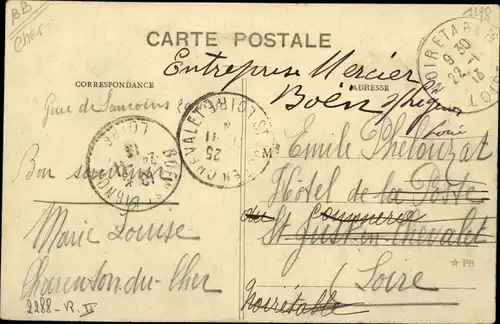 BB
Cher
CARTE POSTALE
CORRESPONDANCE
ADRESSE
Entreprise Mercier
Boën s/Lignon
Loire
NOIRETABLE
9 30
22 - 1
13
Gare de Sancoins
Bon souvenir
Marie Louise
Charenton-du-Cher
2288-
ST JUST EN CHEVALET
LOIRE
25
11
BOEN SUR LIGNON
LOIRE
M Emile Phelouzat
Hôtel de la Poste
du Commerce
St Just-en-Chevalet
Loire
Noirétable
PB